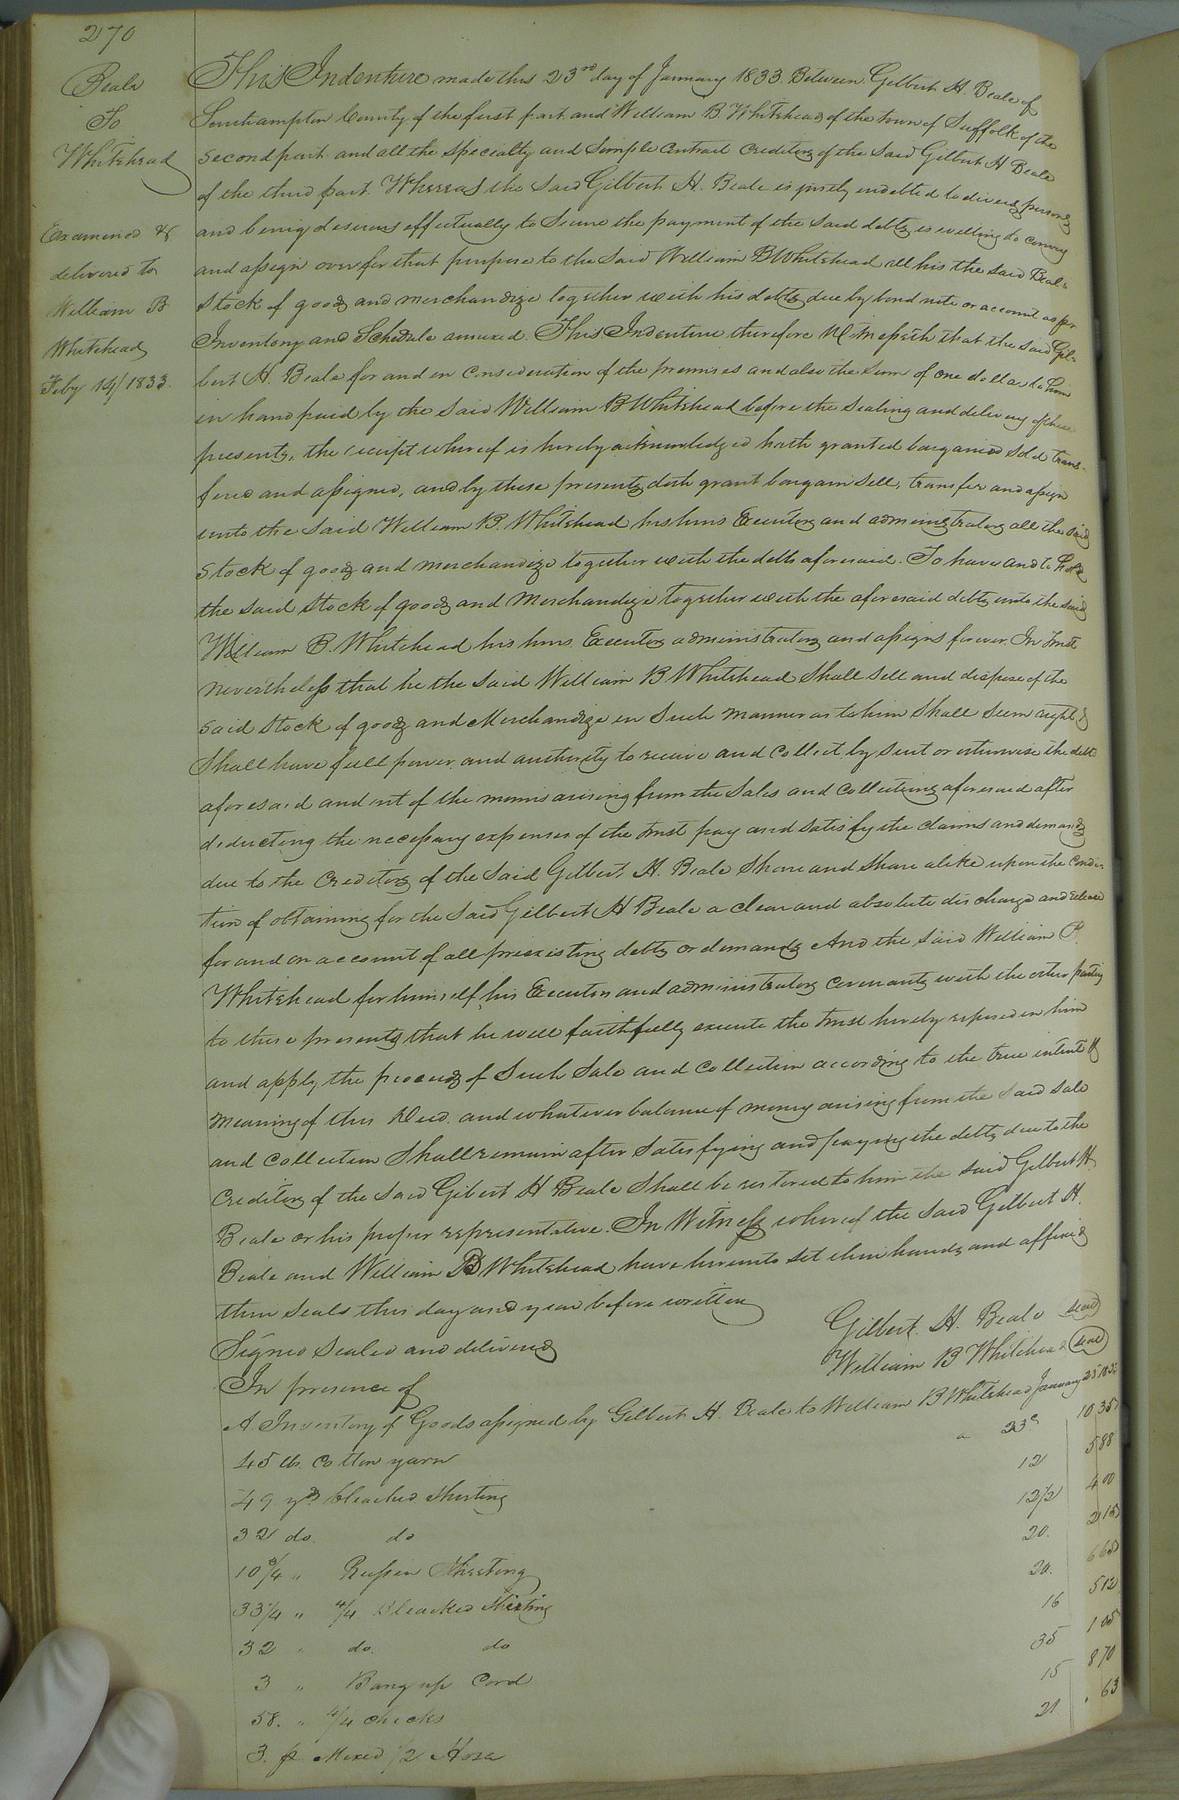 270
Beale
To
Whitehead
Examined &
delivered to
William B
Whitehead
Feby 14/1833.
This Indenture made this 23rd day of January 1833 Between Gilbert H. Beale of
Southampton County of the first part and William B. Whitehead of the town of Suffolk of the
second part and all the specialty and Simple Contract Creditors of the said Gilbert H Beale
of the third part. Whereas the said Gilbert H. Beale is justly indebted to divers persons
and being desirous effectually to secure the payment of the said debts is willing to convey
and assign over for that purpose to the said William B Whitehead all his the said Beale
stock of goods and merchandize together with his debts due by bond note or account as per
Inventory and Schedule annexed. This Indenture therefore Witnesseth that the said Gil-
bert H. Beale for and in Consideration of the premises and also the sum of one dollar to him
in hand paid by the said William B Whitehead before the sealing and delivery of these
presents, the receipt whereof is hereby acknowledged hath granted bargained sold trans-
fered and assigned, and by these presents doth grant bargain sell, transfer and assign
unto the said William B. Whitehead his heirs Executors and administrators all the said
stock of goods and merchandize together with the debts aforesaid. To have and to hold
the said stock of goods and Merchandize together with the aforesaid debts unto the said
William B. Whitehead his heirs Executors administrators and assigns forever. In trust
nevertheless that he the said William B Whitehead shall sell and dispose of the
said stock of goods and Merchandize in such manner as to him shall seem right &
shall have full power and authority to receive and collect by suit or otherwise the debts
aforesaid and out of the monies arising from the sales and collections aforesaid after
deducting the necessary expenses of the trust pay and satisfy the claims and demands
due to the Creditors of the said Gilbert H. Beale share and share alike upon the condi-
tion of obtaining for the said Gilbert H Beale a clear and absolute discharge and release
for and on account of all preexisting debts or demands And the said William B.
Whitehead for himself, his Executors and administrators covenants with the other parties
to these presents that he will faithfully execute the trust hereby reposed in him
and apply the proceeds of such sale and collection according to the true intent &
meaning of this Deed and whatever balance of money arising from the said sale
and collection shall remain after satisfying and paying the debts due to the
creditors of the said Gilbert H Beale shall be restored to him the said Gilbert H
Beale or his proper representative. In Witness whereof the said Gilbert H.
Beale and William B Whitehead have hereunto set their hands and affixed
their seals this day and year before written
Signed Sealed and delivered
Gilbert. H. Beale seal
In presence of
William B Whitehead seal
A Inventory of Goods assigned by Gilbert H. Beale to William B Whitehead January 23 1833
45 lb. Cotton yarn a 23c 10 35
49 yds bleached Shirting 12 5 88
32 do. do 12 1/2 4 00
10 3/4 " Russia Sheeting 20. 2 15
33 1/4 " 4/4 Bleached Shirting 20. 6 65
32 " do. do 16 5 12
3 " Bang up Cord 35 1 05
58. " 4/4 checks 15 8 70
3. p. Mixed 1/2 Hose 21 " 63